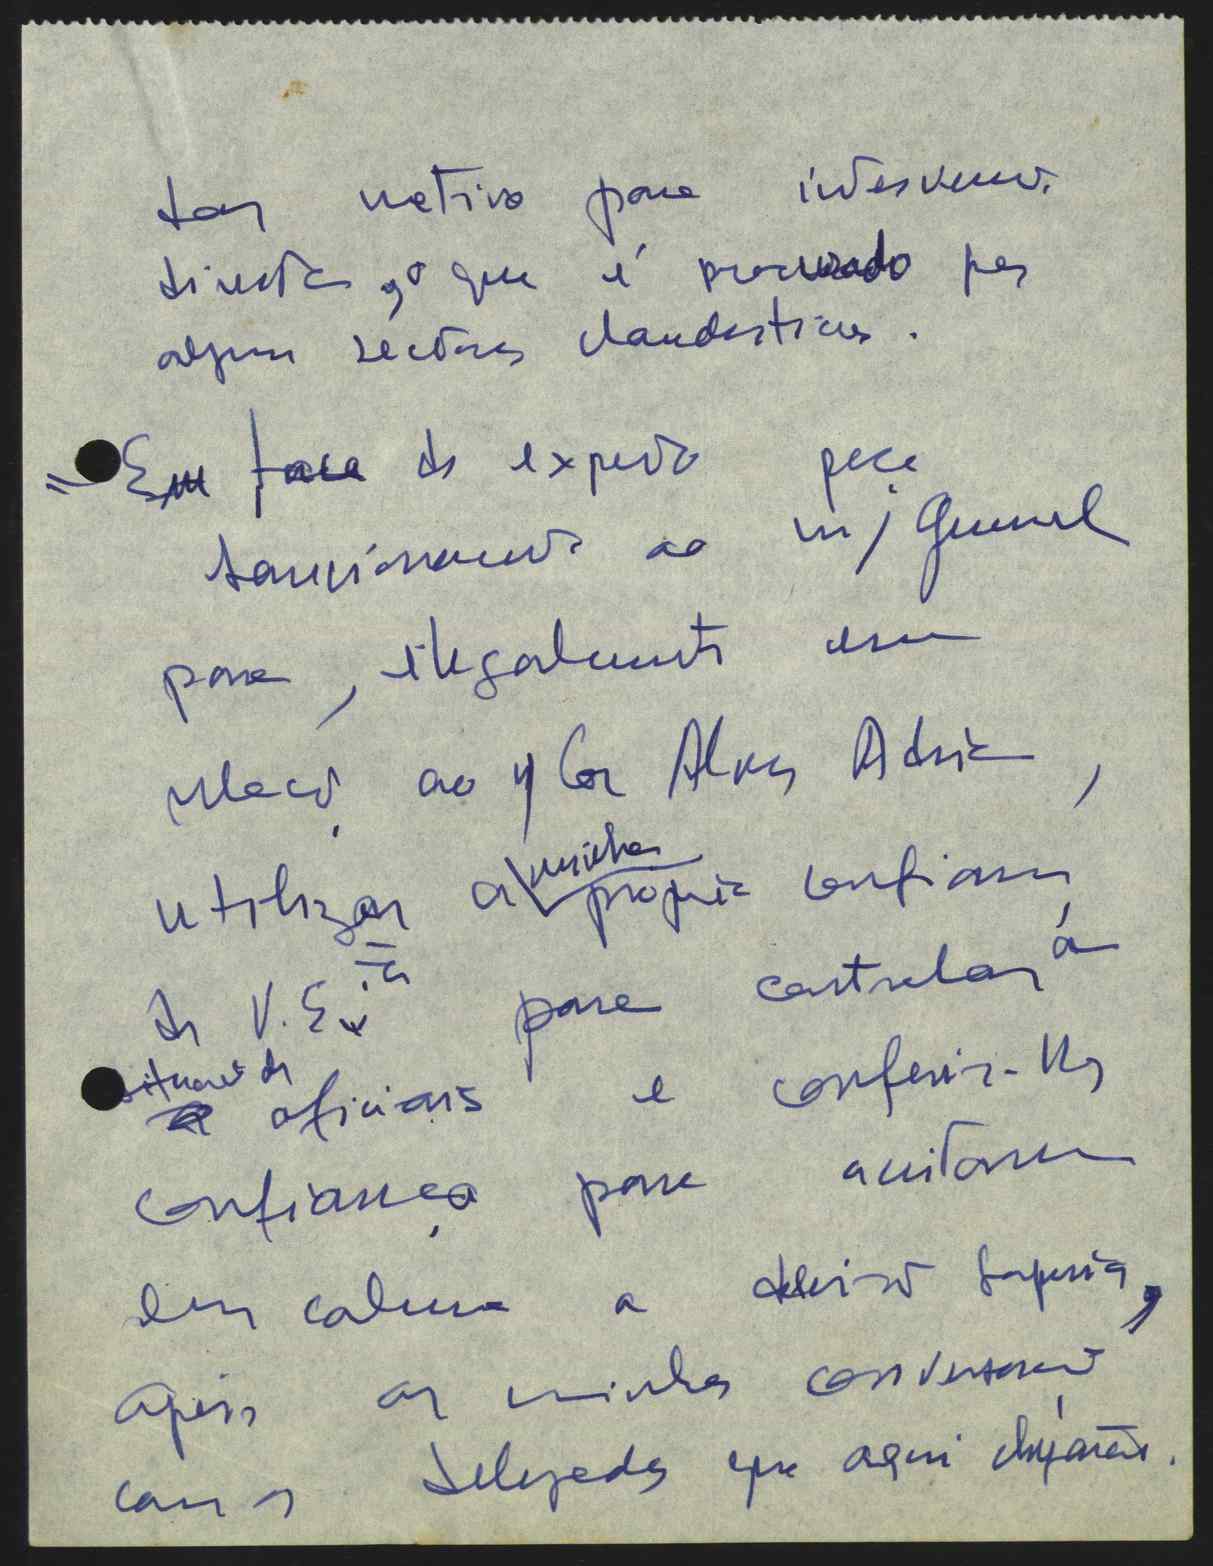 dar motivo para intervenção
directa, o que é procurado por
alguns sectores clandestinos.
Em face do exposto peço
ao m/ General
para, ilegalmente em
relação ao Cor Alves
utilizar a minha própria confiança
de V. Ex.ia para controlar a
situação de oficiais e conferir-lhes
confiança para aceitarem
em calma a decisão superior,
após as minhas conversações
com os delegados que aqui chegarão.